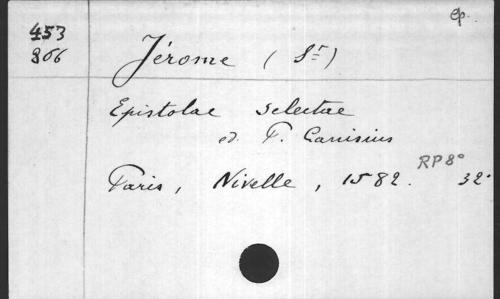 Ep.
453
866
Jérome (St)
Epistolae selectae
ed. P. Canisius
Paris, Nivelle, 1582. RP8° 32°